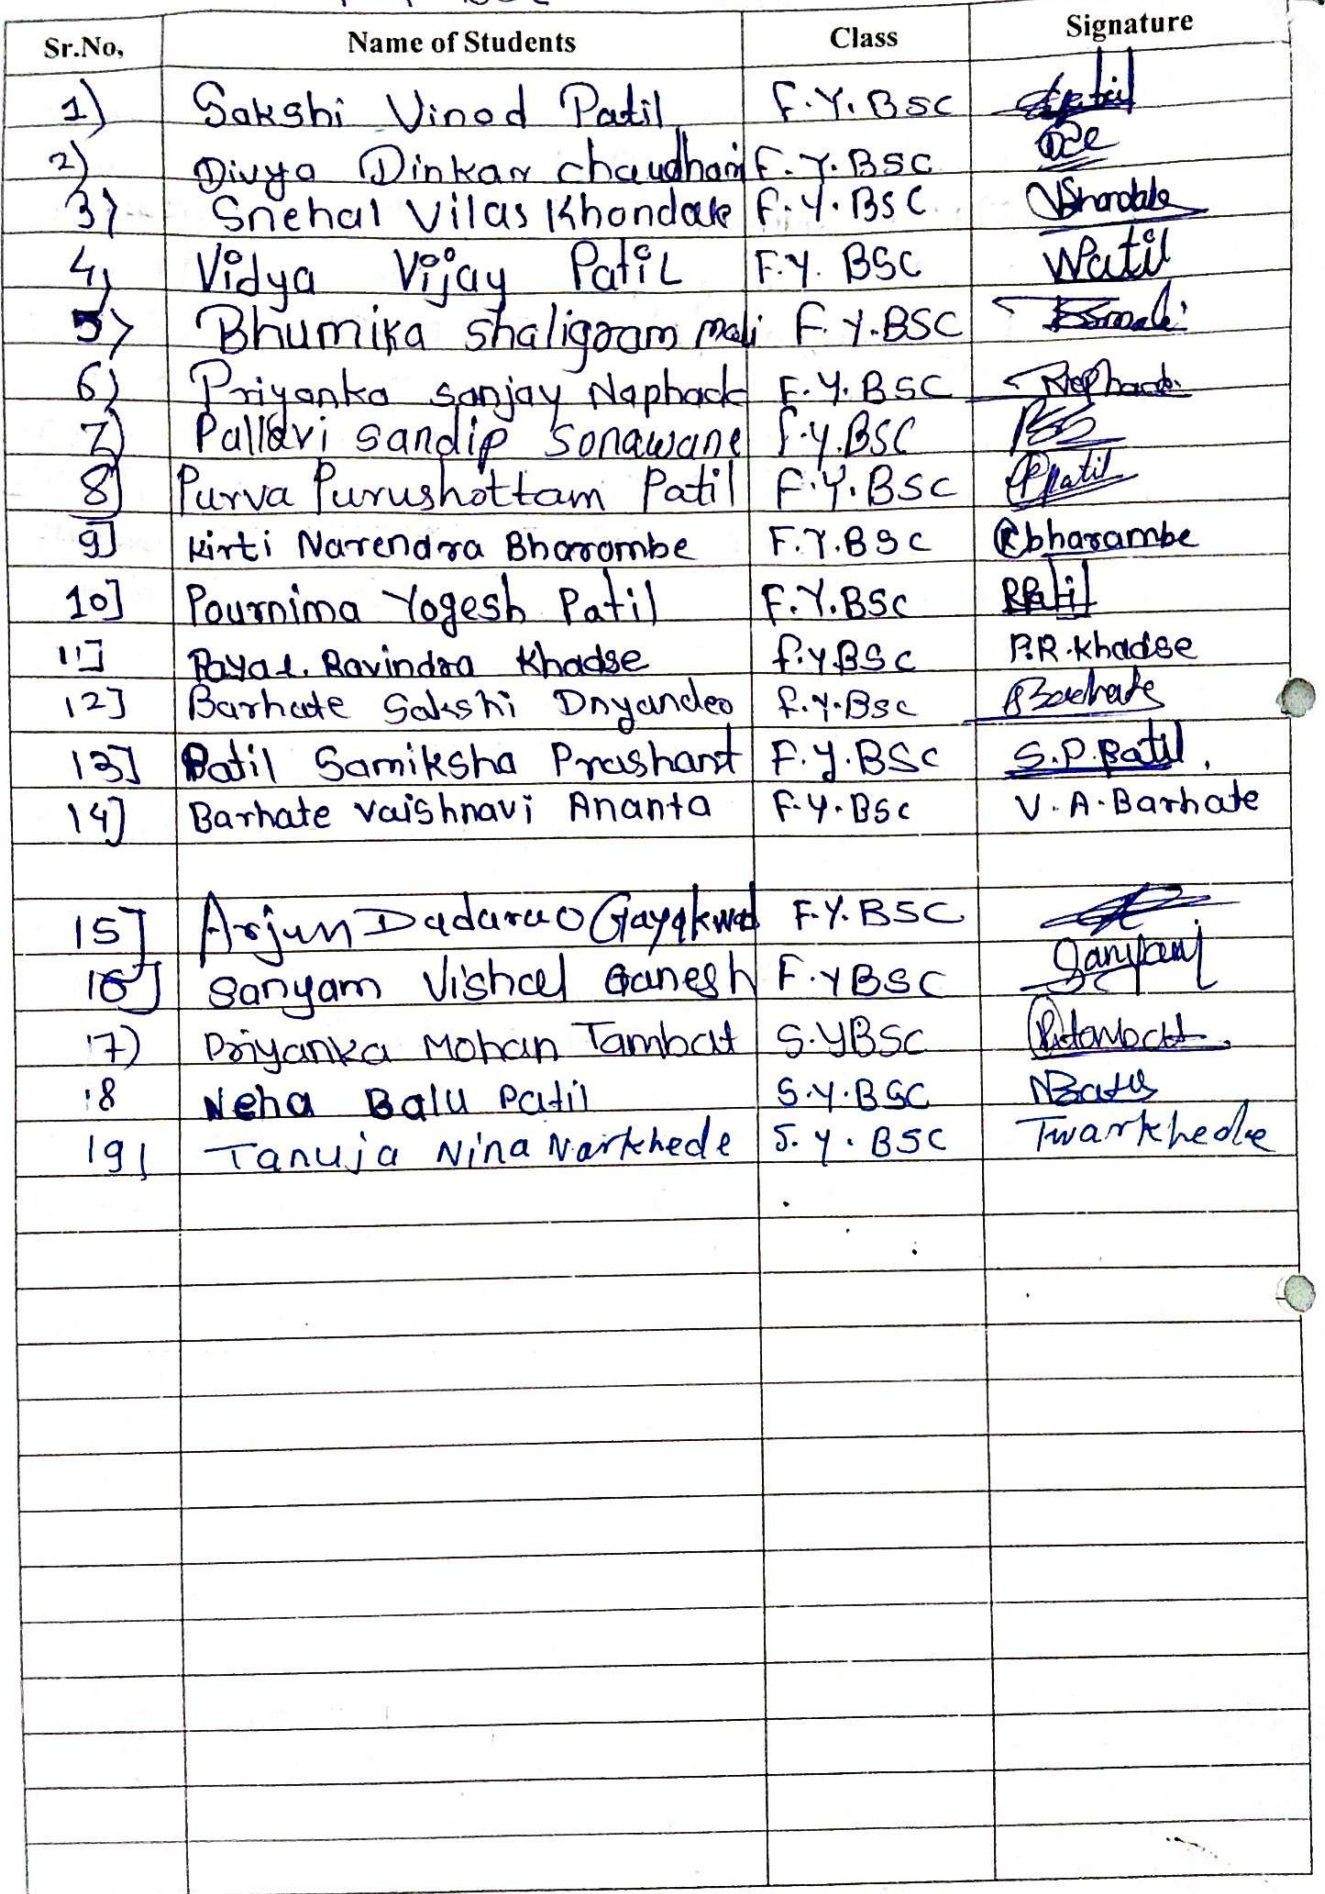 Sr.No, Name of Students Class Signature
1) Sakshi Vinod Patil F.Y.BSC
2) Divya Dinkar chaudhari F.Y.BSC
3) Snehal Vilas Khondale F.Y.BSC
4) Vidya Vijay Patil F.Y. BSC
5) Bhumika Shaligram mali F.Y.BSC
6) Priyanka sanjay Naphade F.Y.BSC
7) Pallavi sandip sonawane F.Y.BSC
8] Purva Purushottam Patil F.Y.BSC Ppatil
9] Kirti Narendra Bharambe F.Y.BSC kbharambe
10] Pournima Yogesh Patil F.Y.BSC PPatil
11] Payal. Ravindra Khadse F.Y.BSC P.R.Khadse
12] Barhate Sakshi Dnyandeo F.Y.BSC
13] Patil Samiksha Prashant F.Y.BSC S.P.Patil.
14] Barhate Vaishnavi Ananta F.Y.BSC V.A.Barhate
15] Arjun Dadarao Gayakwad F.Y.BSC
16] Sanyam Vishal Ganesh F.YBSC
17) Priyanka Mohan Tambat S.YBSC
18 Neha Balu Patil S.Y.BSC
19) Tanuja Nina Narkhede S.Y.BSC Tnarkhede